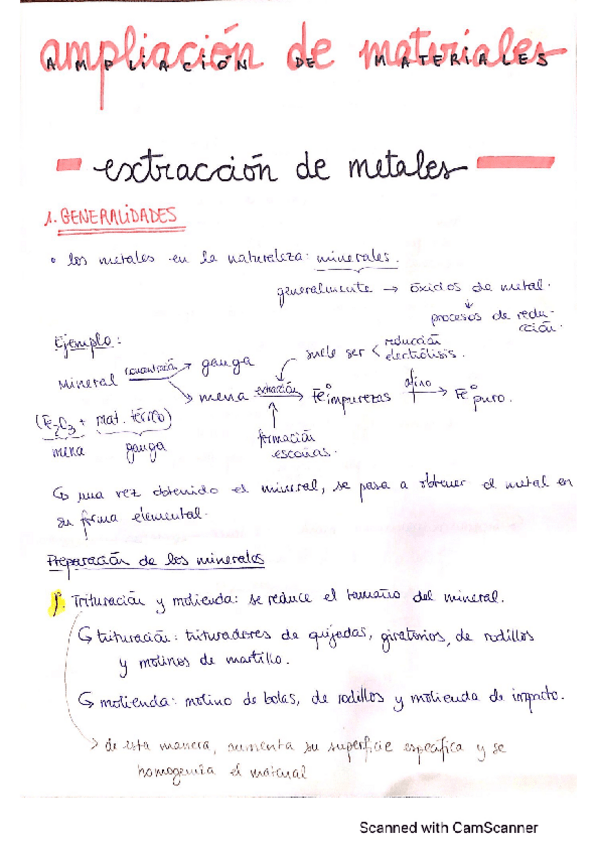 ampliación de materiales
AMPLIACIÓN DE MATERIALES
extracción de metales
1. GENERALIDADES
• los metales en la naturaleza: minerales.
generalmente → óxidos de metal.
↓
procesos de reduc-
ción.
Ejemplo:
mineral concentración → ganga
→ mena extracción → Fe° impurezas afino → Fe° puro.
suele ser < reducción
electrólisis.
(Fe2O3 + mat. térreo)
mena ganga
formación
escorias.
↳ una vez obtenido el mineral, se pasa a obtener el metal en
su forma elemental.
Preparación de los minerales
1º. Trituración y molienda: se reduce el tamaño del mineral.
↳ trituración: trituradores de quijadas, giratorios, de rodillos
y molinos de martillo.
↳ molienda: molino de bolas, de rodillos y molienda de impacto.
→ de esta manera, aumenta su superficie específica y se
homogeniza el material
Scanned with CamScanner